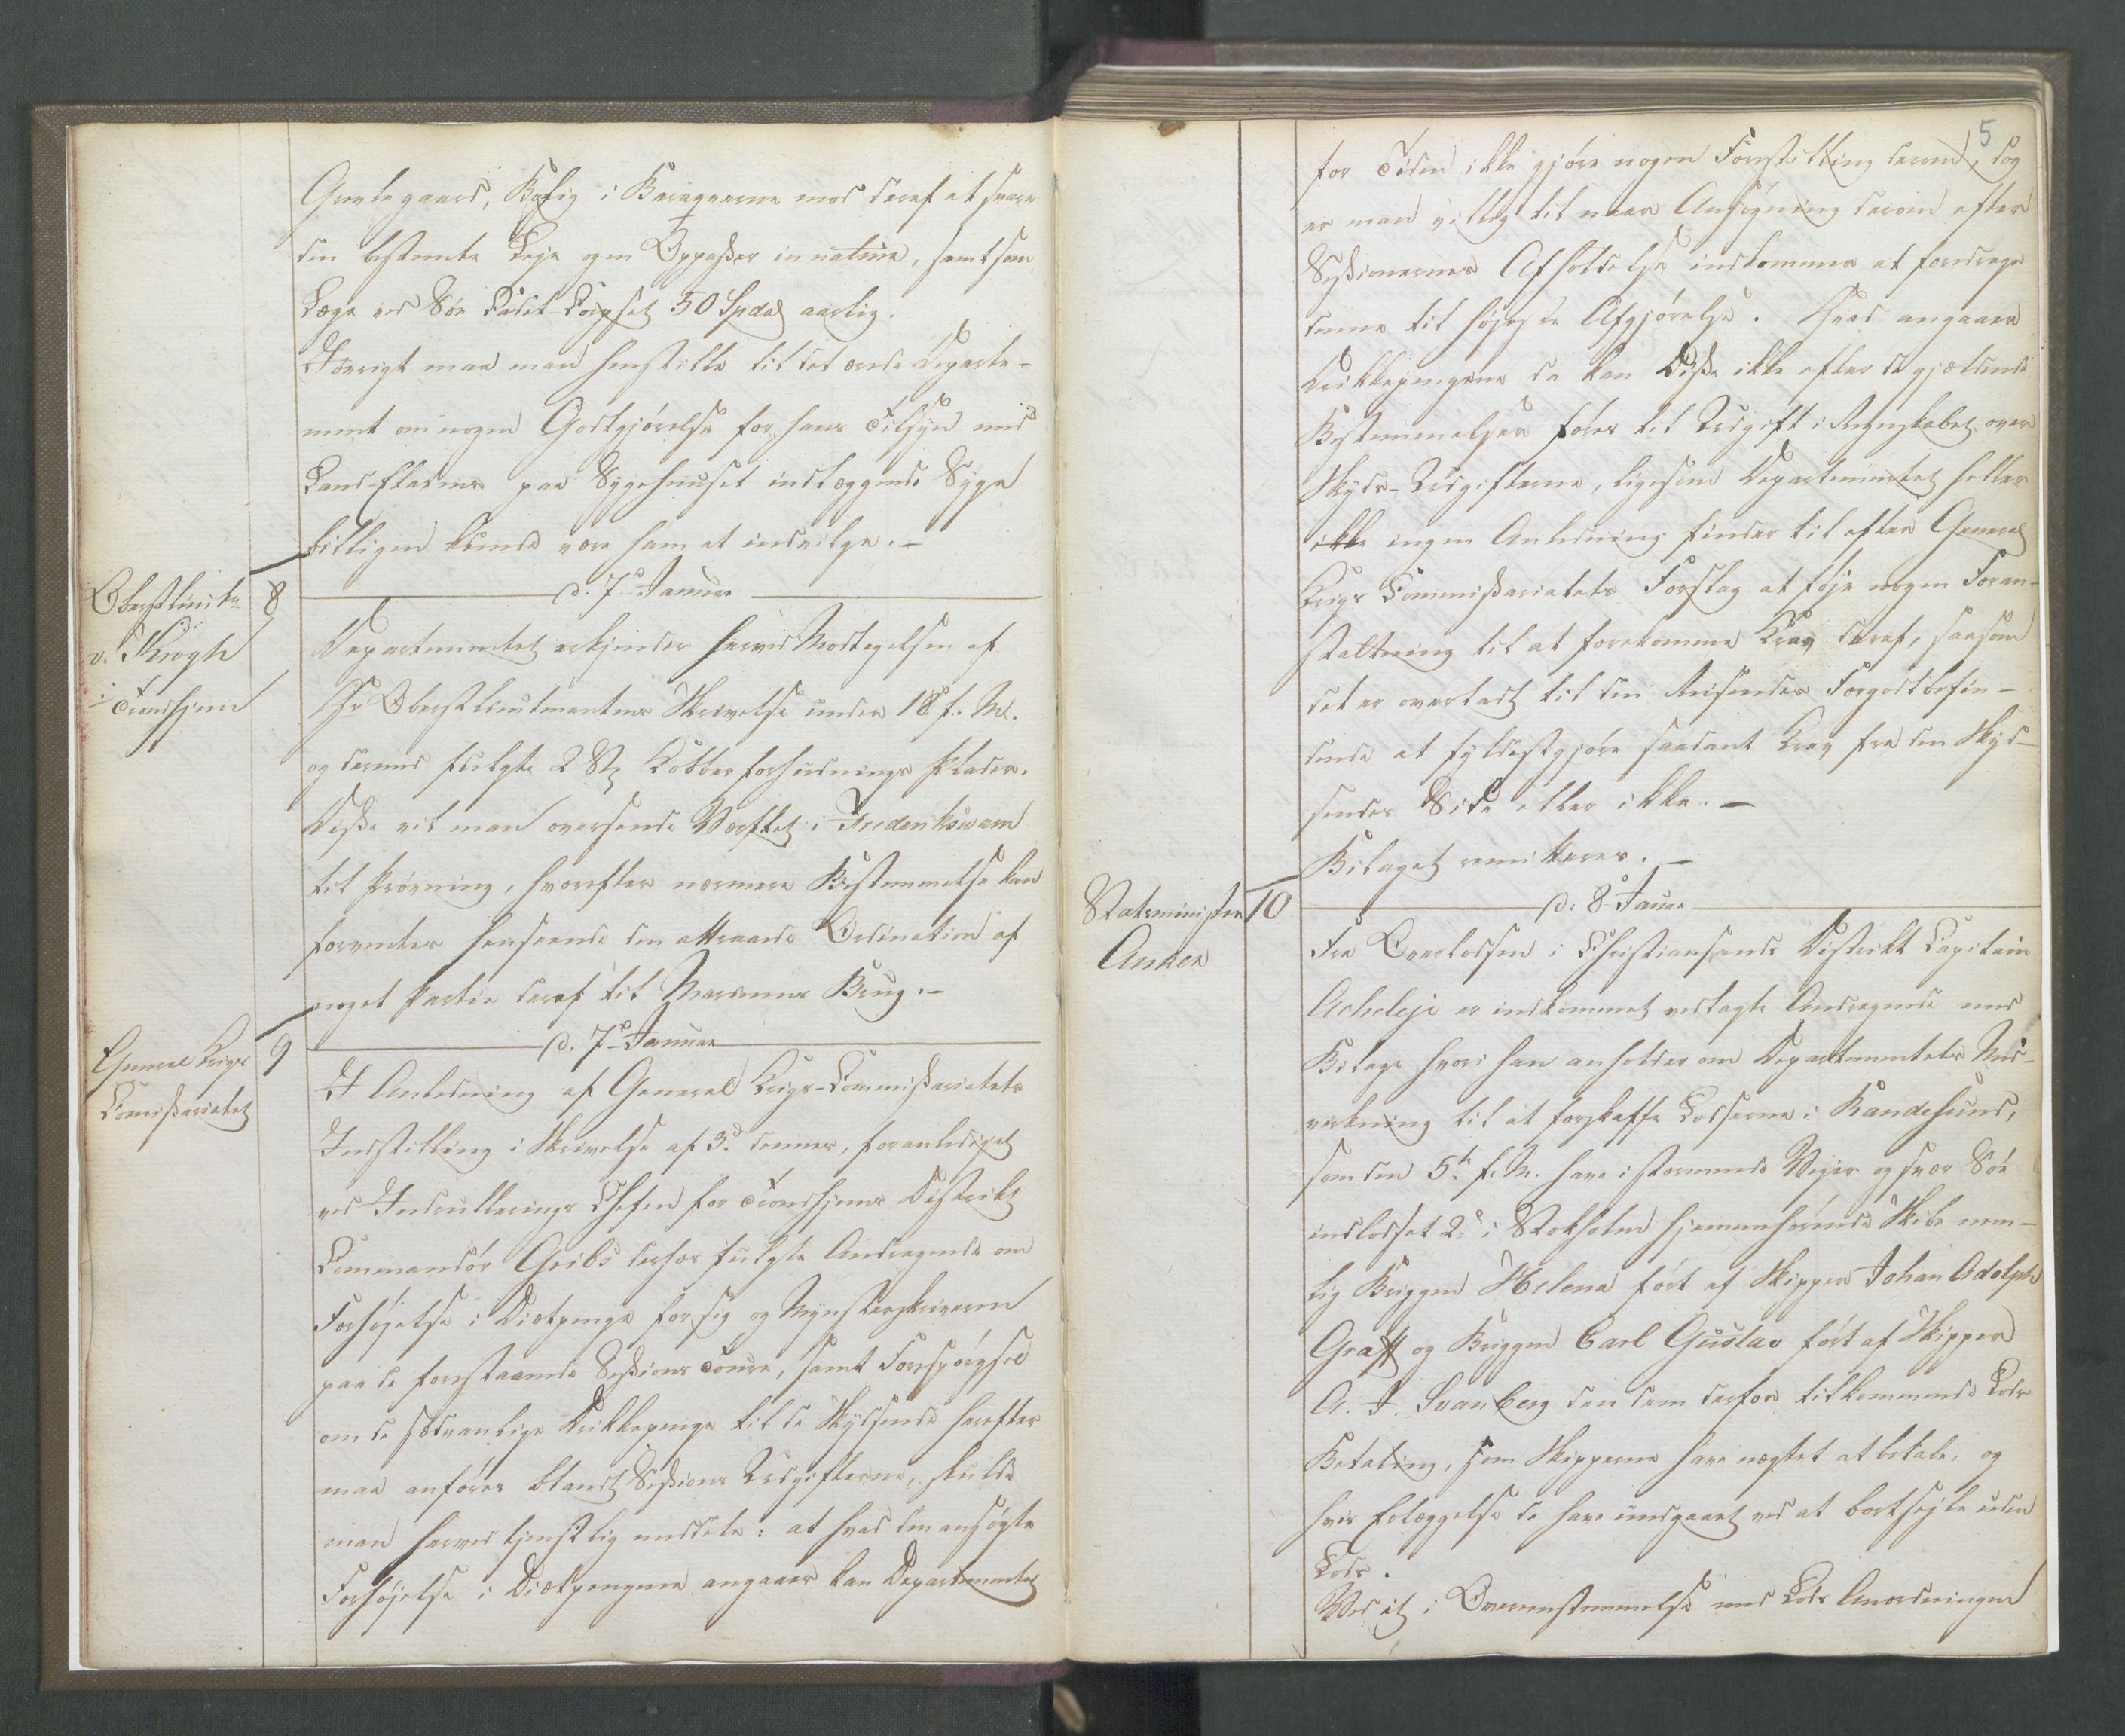 Grevlegaard, Bolig i Baraquerne mod deraf at svare
den bestemte Leje og en Oppasser in natura, samt som
Læge ved Søe Cadet-Corpset 50 Spd aarlig.
Iøvrigt maa man henstille til det ærede Departe-
ment om nogen Godtgjørelse for hans Tilsyn med
Land-Etatens paa Sygehuuset indlæggende Syge
billigen kunde være ham at indvilge. —
d. 7de Januar
Oberstlieutn
v. Krogh
i
Trondhjem
8
Departementet erkjender herved Modtagelsen af
Hr Oberstlieutnantens Skrivelse under 18 f. M.
og dermed fulgte 2 St Kobberforhudnings Plader.
Disse vil man oversende Værftet i Frederiksværn
til Prøvning, hvorefter nærmere Bestemmelse kan
forventes henseende den attraaede Ordination af
noget Partie deraf til Marinens Brug. —
d. 7de Januar
General Krigs
Comissariatet
9
I Anledning af General Krigs-Commissariatets
Indstilling i Skrivelse af 3d dennes, foranlediget
ved Indrullerings Chefen for Trondhjems Distrikt
Commandør Gribs derhos fulgte Andragende om
Forhøjelse i Diætpenge for sig og Mynsterskriveren
paa de forestaaende Sessions Toure, samt Forespørgsel
om de sædvanlige Drikkepenge til de Skydsende herefter
maa anføres blandt Sessions Udgifterne, skulde
man herved tjenstlig meddele: at hvad den ansøgte
Forhøjelse i Diætpengene angaaer kan Departementet
5
for Tiden ikke gjøre nogen Forestilling derom, dog
er man villig til naar Ansøgning derom efter
Sessionernes Afholdelse indkommer at foredrage
denne til høieste Afgjørelse. Hvad angaaer
Drikkepengene da kan Disse ikke efter de gjældende
Bestemmelser føres til Udgift i Regnskabet over
Skyds-Udgifterne, ligesom Departementet heller
ikke ingen Anledning finder til efter General
Krigs Commissariatets Forslag at føje nogen Foran-
staltning til at forekomme Krav deraf, saasom
det er overladt til den Reisendes Forgodtbefin-
dende at fyldestgjøre saadant Krav fra den Skyd-
sendes Side eller ikke. —
Bilaget remitteres. —
d. 8de Januar
Statsminister
Anker
10
Fra Overlodsen i Christiansands Distrikt Capitain
Acheleje er indkommet vedlagte Andragende med
Bilage hvori han anholder om Departementets Med-
virkning til at forskaffe Lodserne i Randesund,
som den 5te f. M. have i stormende Vejr og svær Søe
indlodset 2de i Stokholm hjemmehørende Skibe nem-
lig Briggen Helena ført af Skipper Johan Adolph
Graff og Briggen Carl Gustav ført af Skipper
A. F. Svanberg den dem derfor tilkommende Lods
Betaling, som Skipperne have nægtet at betale, og
hvis Erlæggelse de have undgaaet ved at bortsejle uden
Lods.
Med at i Overensstemmelse med Lods Anordningen